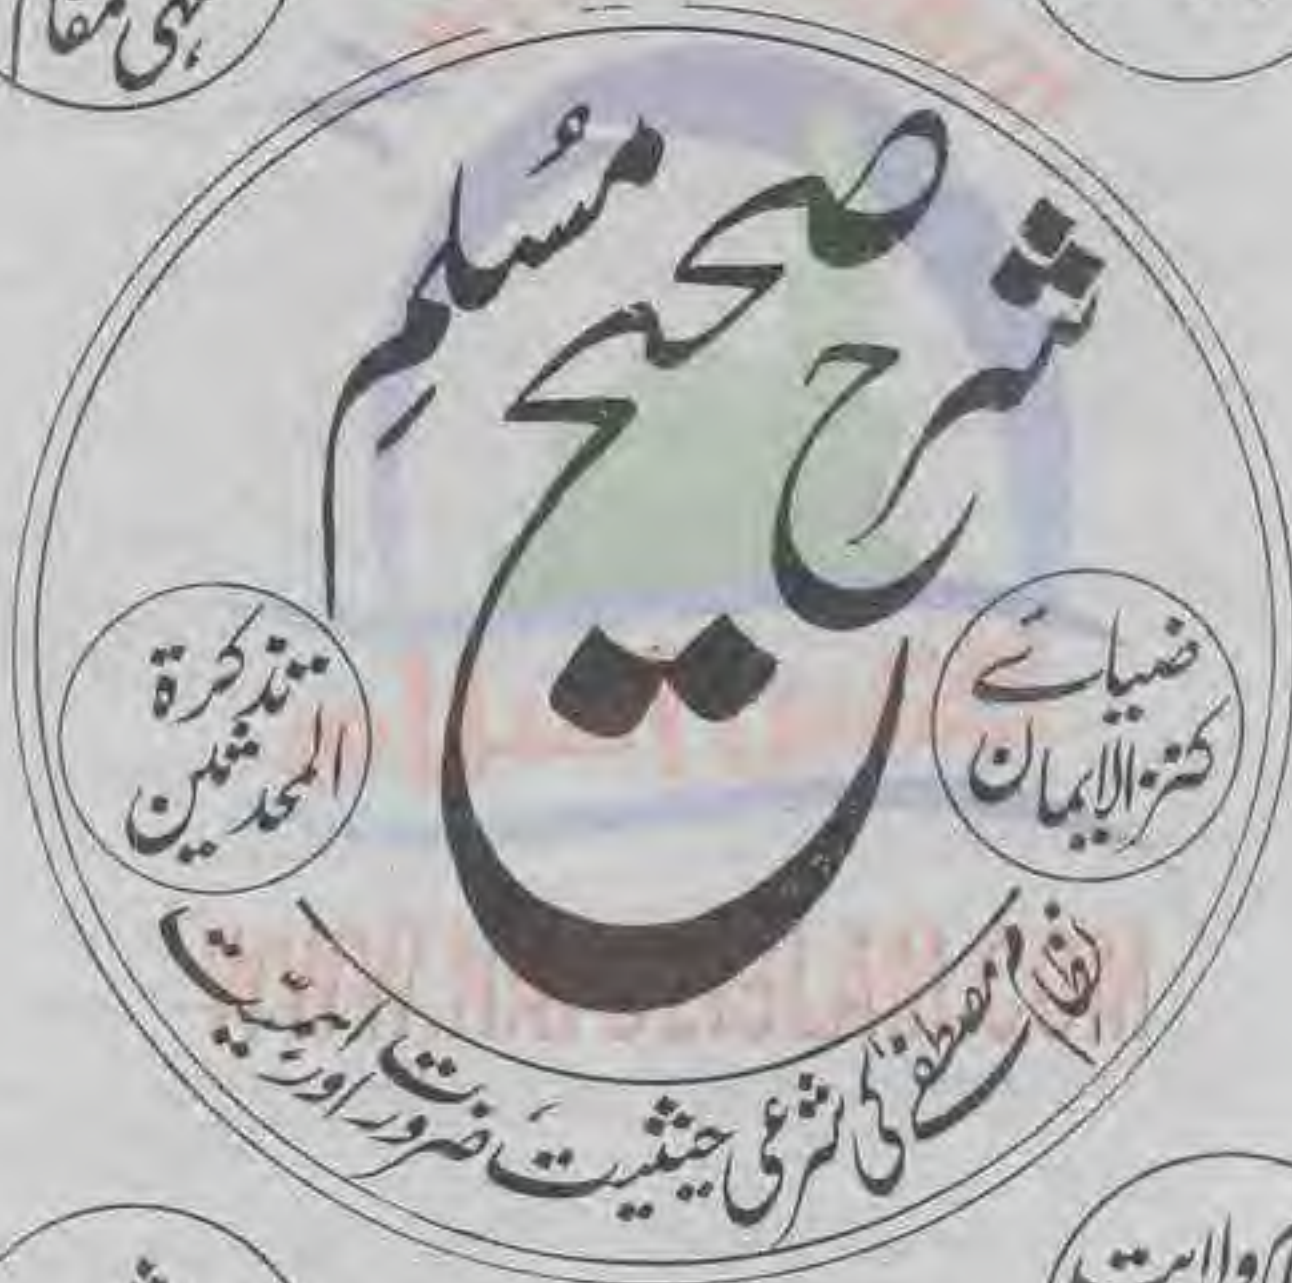 شرح صحیح مُسلِم
ضیائے
کنزالایمان
تذکرۃ
المحدثین
نظام مصطفےٰ کی شرعی حیثیت، ضرورت اور اہمّیت